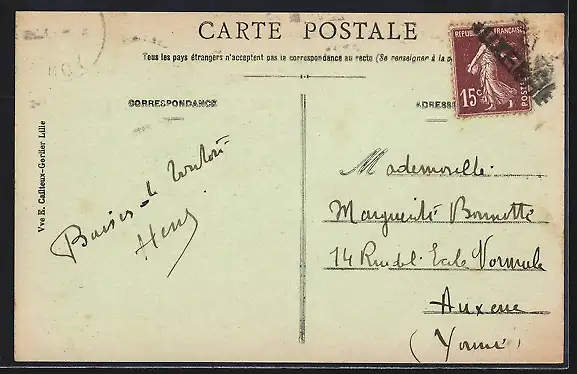 CARTE POSTALE
Tous les pays étrangers n'acceptent pas la correspondance au recto (Se renseigner à la p
REPUBLIQUE FRANÇAISE
15c
POSTES
CORRESPONDANCE
ADRESSE
Vve E. Cailleux-Gorlier Lille
Baisers
Mademoiselle
Marguerite Bonnotte
14 Rue de l'Ecole Normale
Auxerre
(Yonne)